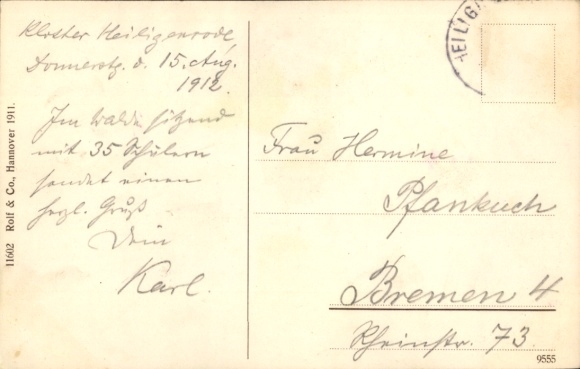 Kloster Heiligenrode
Donnerstg. d. 15. Aug.
1912.
Im Walde sitzend
mit 35 Schülern
sendet einen
herzl. Gruß
Dein
Karl.
11602 Rolf & Co., Hannover 1911.
HEILIG
Frau Hermine
Pfankuch
Bremen 4
Rheinstr. 73.
9555